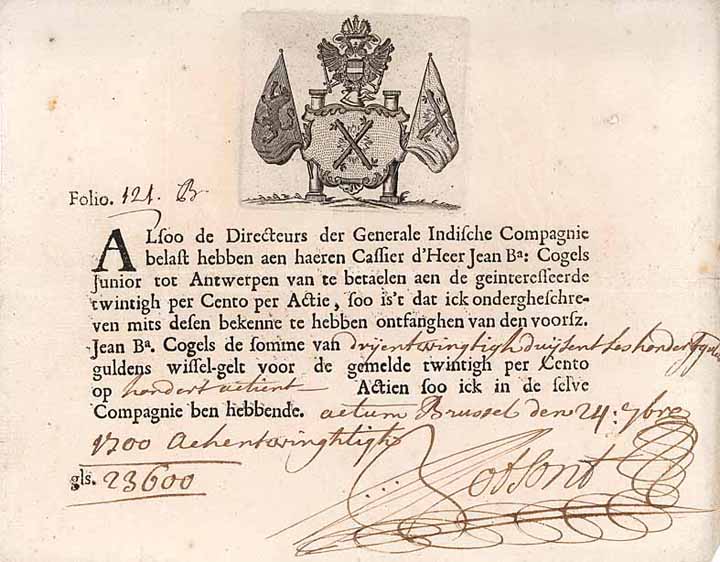 Folio. 121. B
ALsoo de Directeurs der Generale Indische Compagnie
belast hebben aen haeren Cassier d'Heer Jean Ba: Cogels
Junior tot Antwerpen van te betaelen aen de geinteresseerde
twintigh per Cento per Actie, soo is't dat ick ondergheschre-
ven mits desen bekenne te hebben ontfanghen van den voorsz.
Jean Ba. Cogels de somme van drijentwingtigh duijsent ses hondert
guldens wissel-gelt voor de gemelde twintigh per Cento
op hondert achtient Actien soo ick in de selve
Compagnie ben hebbende. actum Brussel den 24: 7bre
1700 Achentwinghtigh
gls. 23600